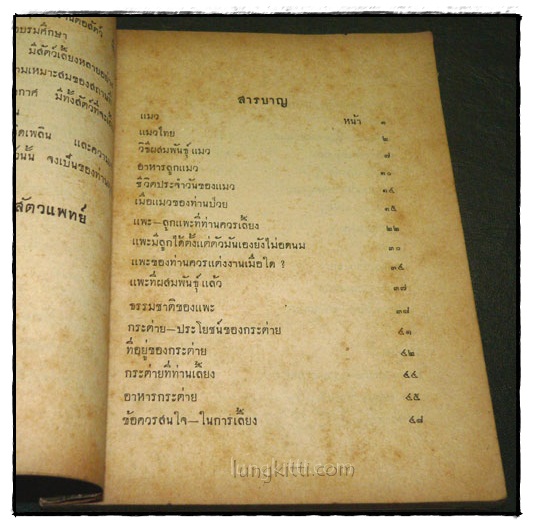 อบรมศึกษา
มีสัตว์เลี้ยงหลายอย่าง
ามเหมาะสมของสถานที่
กาศ มีทั้งสัตว์ที่จะเลี้
ัดเพลิน และความ
์นั้น จงเป็นของท่าน
สัตวแพทย์
สารบาญ
แมว หน้า ๑
แมวไทย ๒
วิธีผสมพันธุ์แมว ๗
อาหารลูกแมว ๑๐
ชีวิตประจำวันของแมว ๑๔
เมื่อแมวของท่านป่วย ๑๕
แพะ—ลูกแพะที่ท่านควรเลี้ยง ๒๒
แพะมีลูกได้ตั้งแต่ตัวมันเองยังไม่อดนม ๓๐
แพะของท่านควรแต่งงานเมื่อใด ? ๓๕
แพะที่ผสมพันธุ์แล้ว ๓๗
ธรรมชาติของแพะ ๓๗
กระต่าย—ประโยชน์ของกระต่าย ๔๑
ที่อยู่ของกระต่าย ๔๒
กระต่ายที่ท่านเลี้ยง ๔๔
อาหารกระต่าย ๔๕
ข้อควรสนใจ—ในการเลี้ยง ๔๗
lungkitti.com